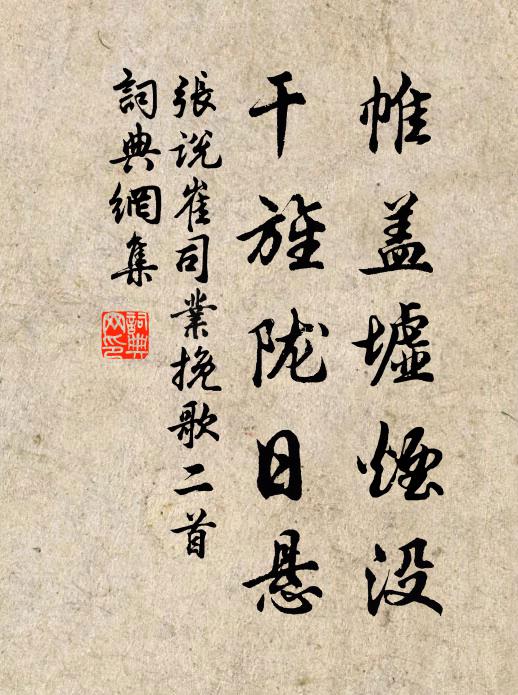 帷盖墟煙没
干旌陇日悬
張说崔司業挽歌二首
詞典網集
詞典
网印